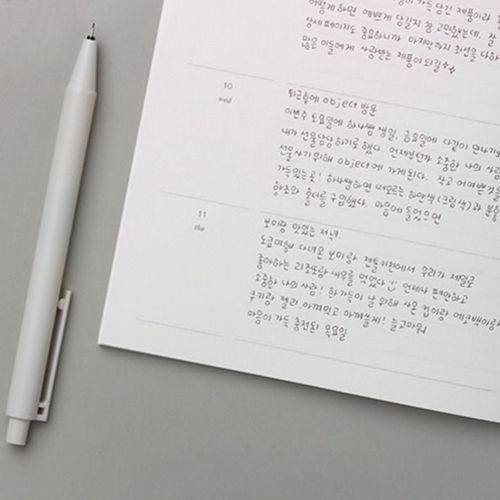 가득 담긴 제품이라
어떻게하면 예쁘게 담길지 참 고민했는데, 잘
상세페이지도 중요하니까 마지막까지 최선을 다하
많은 이들에게 사랑받는 제품이되길
10
wed
퇴근후에 object 방문
이번주 토요일에 하나쌤 생일, 금요일에 다같이 만나기로
내가 선물담당하기로 했다. 언제부턴가 소중한 나의 사람
선물사기위해 object에 가게된다. 작고 어여쁜것들
가득있는곳! 하나쌤하면 떠오르는 하얀색(크림색)과 분홍
향초와 홀더를 구입했다. 마음에들었으면
11
thu
보미랑 맛있는 저녁
도쿄여행 다녀온 보미랑 캔들키친에서 우리가 제일로
좋아하는 리조또랑 새우를 먹었다 :) 언제나 편안하고
소중한 나의 사람! 한가득이 날 위해 사온 컵이랑 에코백이랑
쿠키랑 젤리 아껴먹고 아껴쓸게! 늘고마워
마음이 가득 충전된 목요일